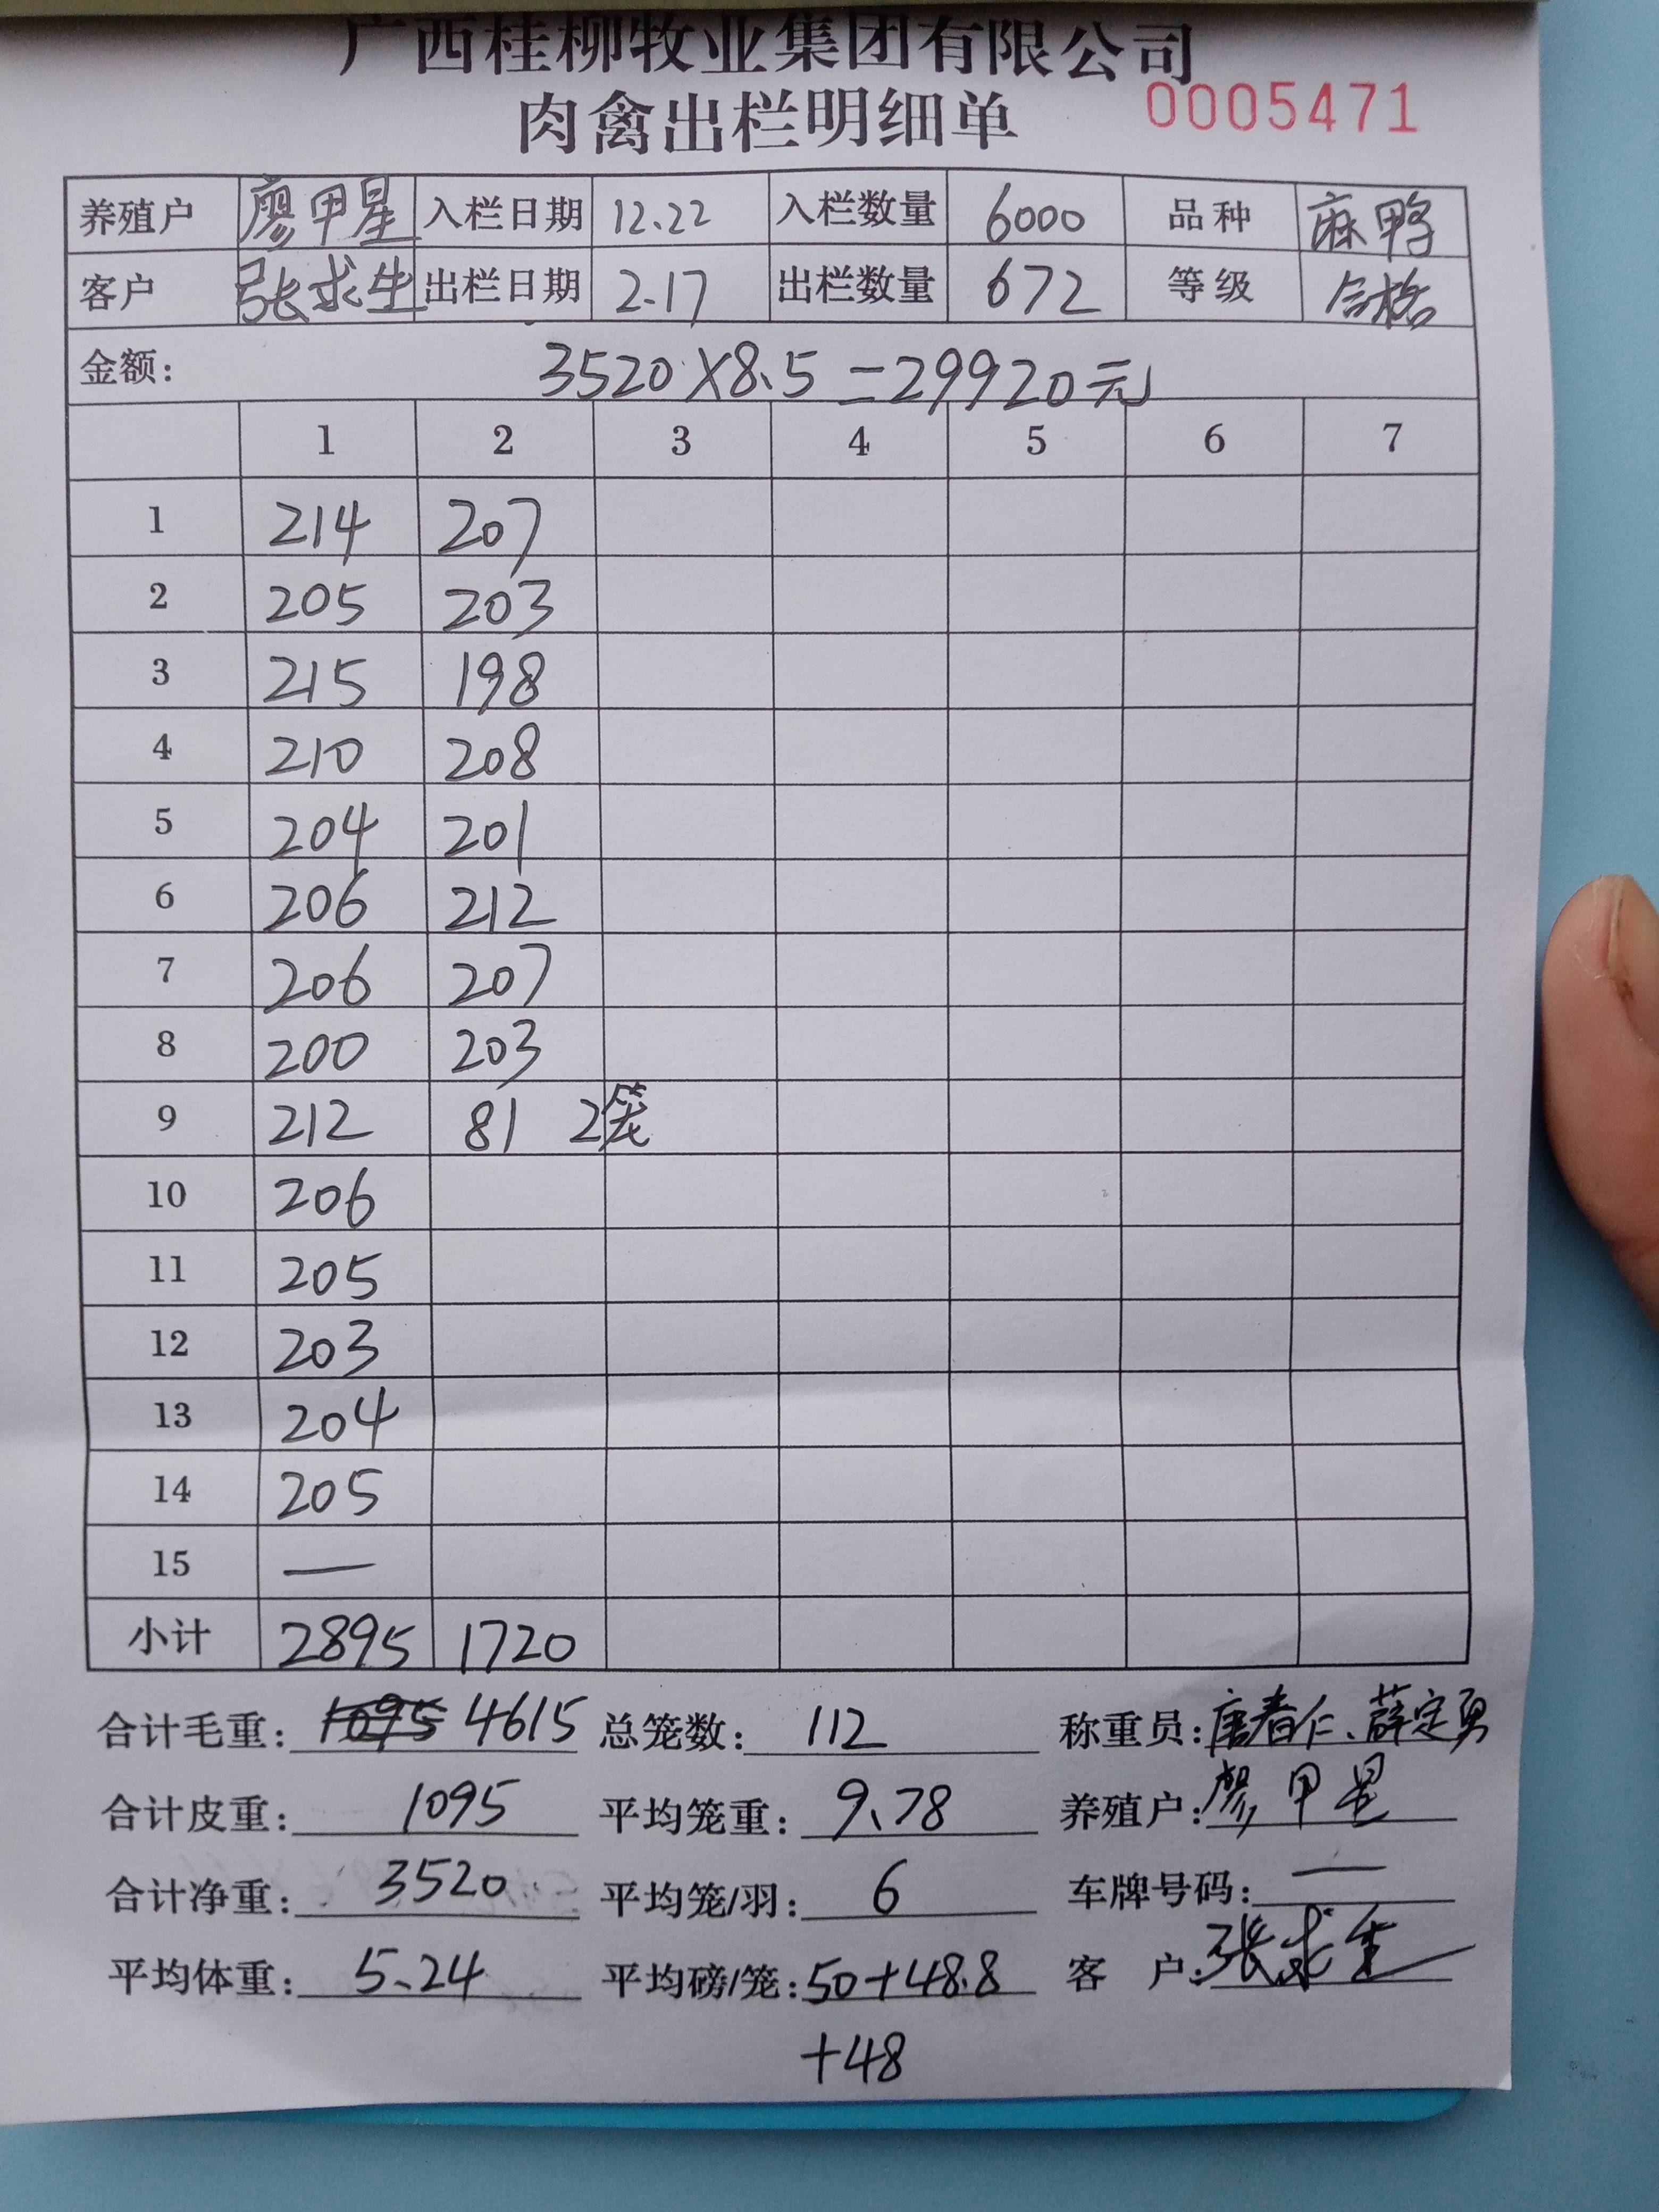 广西桂柳牧业集团有限公司
肉禽出栏明细单 0005471
养殖户 廖甲星 入栏日期 12.22 入栏数量 6000 品种 麻鸭
客户 张求生 出栏日期 2.17 出栏数量 672 等级 合格
金额: 3520×8.5=29920元
1 2 3 4 5 6 7
1 214 207
2 205 203
3 215 198
4 210 208
5 204 201
6 206 212
7 206 207
8 200 203
9 212 81 2笼
10 206
11 205
12 203
13 204
14 205
15 —
小计 2895 1720
合计毛重: 1095 4615 总笼数: 112 称重员: 唐春仁、薛定勇
合计皮重: 1095 平均笼重: 9.78 养殖户: 廖甲星
合计净重: 3520 平均笼/羽: 6 车牌号码: —
平均体重: 5.24 平均磅/笼: 50+48.8 客户: 张求生
+48